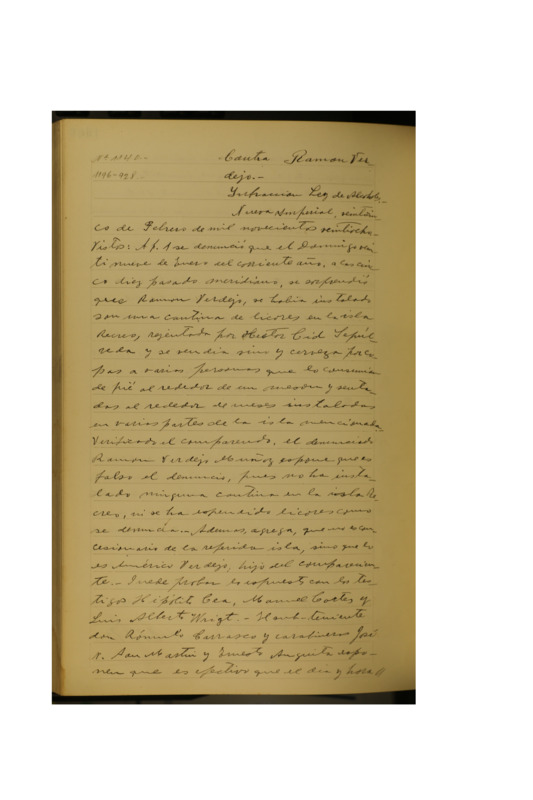 Contra Ramon Ver
dejo.-
1196-928
Infraccion Ley de Alcoholes.-
Nueva Imperial, veintcin
co de Febrero de mil novecientos veintiocho.
Vistos: A f. 1 se denunció que el Domingo vein
ti nueve de Enero del corriente año, a las cin
co diez pasado meridiano, se sorprendió
que Ramon Verdejo, se habia instalado
con una cantina de licores en la isla
Recreo, rejentada por Hector Cid Sepúl
veda y se vendia vino y cerveza por co
pas a varias personas que lo consumia
de pié al rededor de un meson y senta
dos al rededor de meses instalados
en varias partes de la isla mencionada.
Verificado el comparendo, el denunciado
Ramon Verdejo Muñoz espone que es
falso el denuncio, pues no ha insta
lado ninguna cantina en la isla Re
creo, ni se ha espendido licores como
se denuncia. Ademas, agrega, que no es con
cesionario de la referida isla, sino que lo
es Américo Verdejo, hijo del comparecien
te.- Puede probar lo espuesto con los tes
tigos Hipólito Cea, Manuel Cortes y
Luis Alberto Wrigt.- El sub-teniente
don Rómulo Carrasco y carabineros José
R. San Martin y Ernesto Angueta espo-
nen que es efectivo que el dia y hora